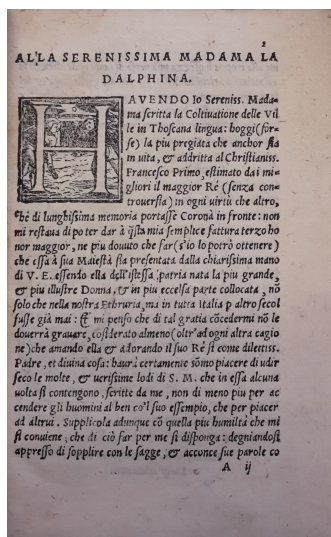 2
ALLA SERENISSIMA MADAMA LA
DALPHINA.
HAVENDO Io Sereniss. Mada-
ma scritta la Coltiuatione delle Vil
le in Thoscana lingua: hoggi (for-
se) la piu pregiata che anchor stia
in uita, & addritta al Christianiss.
Francesco Primo, estimato da i mi-
gliori il maggior Ré (senza con-
trouersia) in ogni uirtù che altro,
che di lunghissima memoria portasse Corona in fronte: non
mi restaua di poter dar à q̃sta mia semplice fattura terzo ho
nor maggior, ne piu douuto che far (s'io lo potrò ottenere)
che essa à sua Maiestà sia presentata dalla chiarissima mano
di V. E. essendo ella dell'istessa patria nata la piu grande,
& piu illustre Donna, & in piu eccelsa parte collocata, nõ
solo che nella nostra Ethruria, ma in tutta Italia p altro secol
fusse già mai: Et mi penso che di tal gratia cõcedermi nõ le
douerrà grauare, cõsiderato almeno (oltr'ad ogni altra cagio
ne) che amando ella & adorando il suo Ré si come dilettiss.
Padre, et diuina cosa: haurà certamente sõmo piacere di udir
seco le molte, & uerissime lodi di S. M. che in essa alcuna
uolta si contengono, scritte da me, non di meno piu per ac
cendere gli huomini al ben co'l suo essempio, che per piacer
ad altrui. Supplicola adunque cõ quella piu humiltà che mi
si conuiene, che di ciò far per me si disponga: degniandosi
appresso di sopplire con le sagge, & acconce sue parole co
A ij